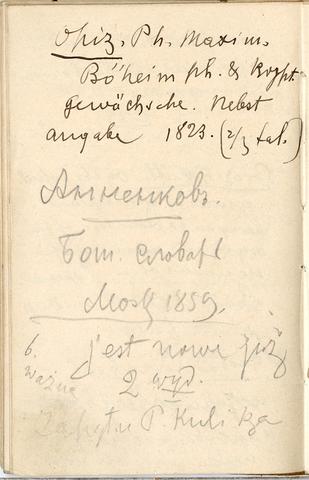 Opiz. Ph. Maxim.
Böheim ph. & krypt.
gewächse. Nebst
angabe 1823. (2/3 tal.)
Анненковъ.
Бот. словарь
Mosk 1859.
6. jest nowe już
ważne 2 wyd.
P. Kulika